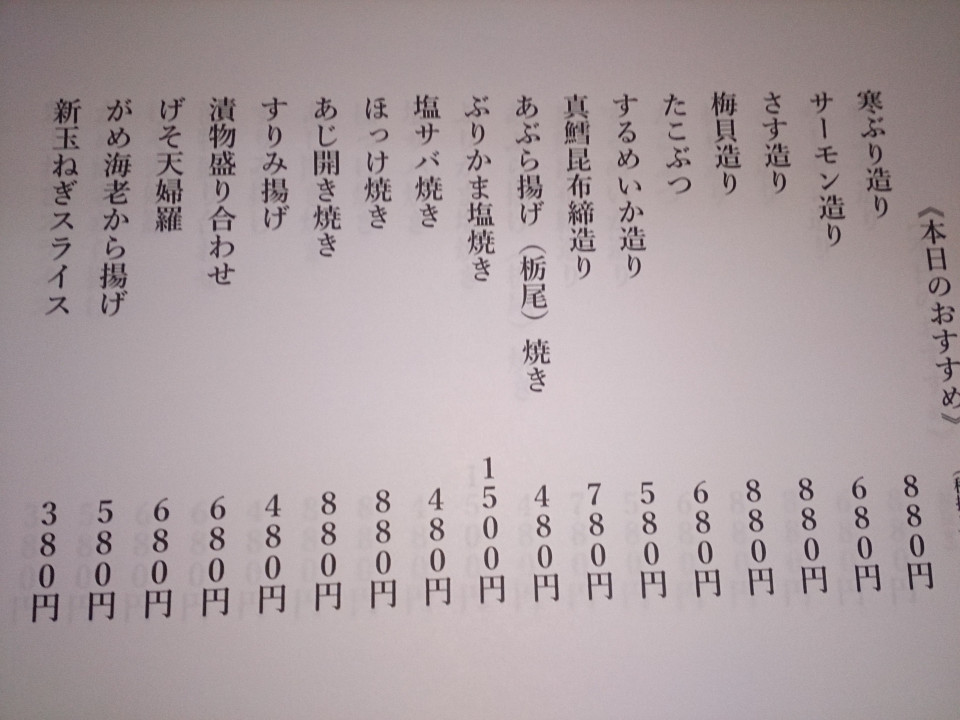 《本日のおすすめ》
寒ぶり造り 880円
サーモン造り 680円
さす造り 880円
梅貝造り 880円
たこぶつ 680円
するめいか造り 580円
真鱈昆布締造り 780円
あぶら揚げ（栃尾）焼き 480円
ぶりかま塩焼き 1500円
塩サバ焼き 480円
ほっけ焼き 880円
あじ開き焼き 880円
すりみ揚げ 480円
漬物盛り合わせ 680円
げそ天婦羅 680円
がめ海老から揚げ 580円
新玉ねぎスライス 380円